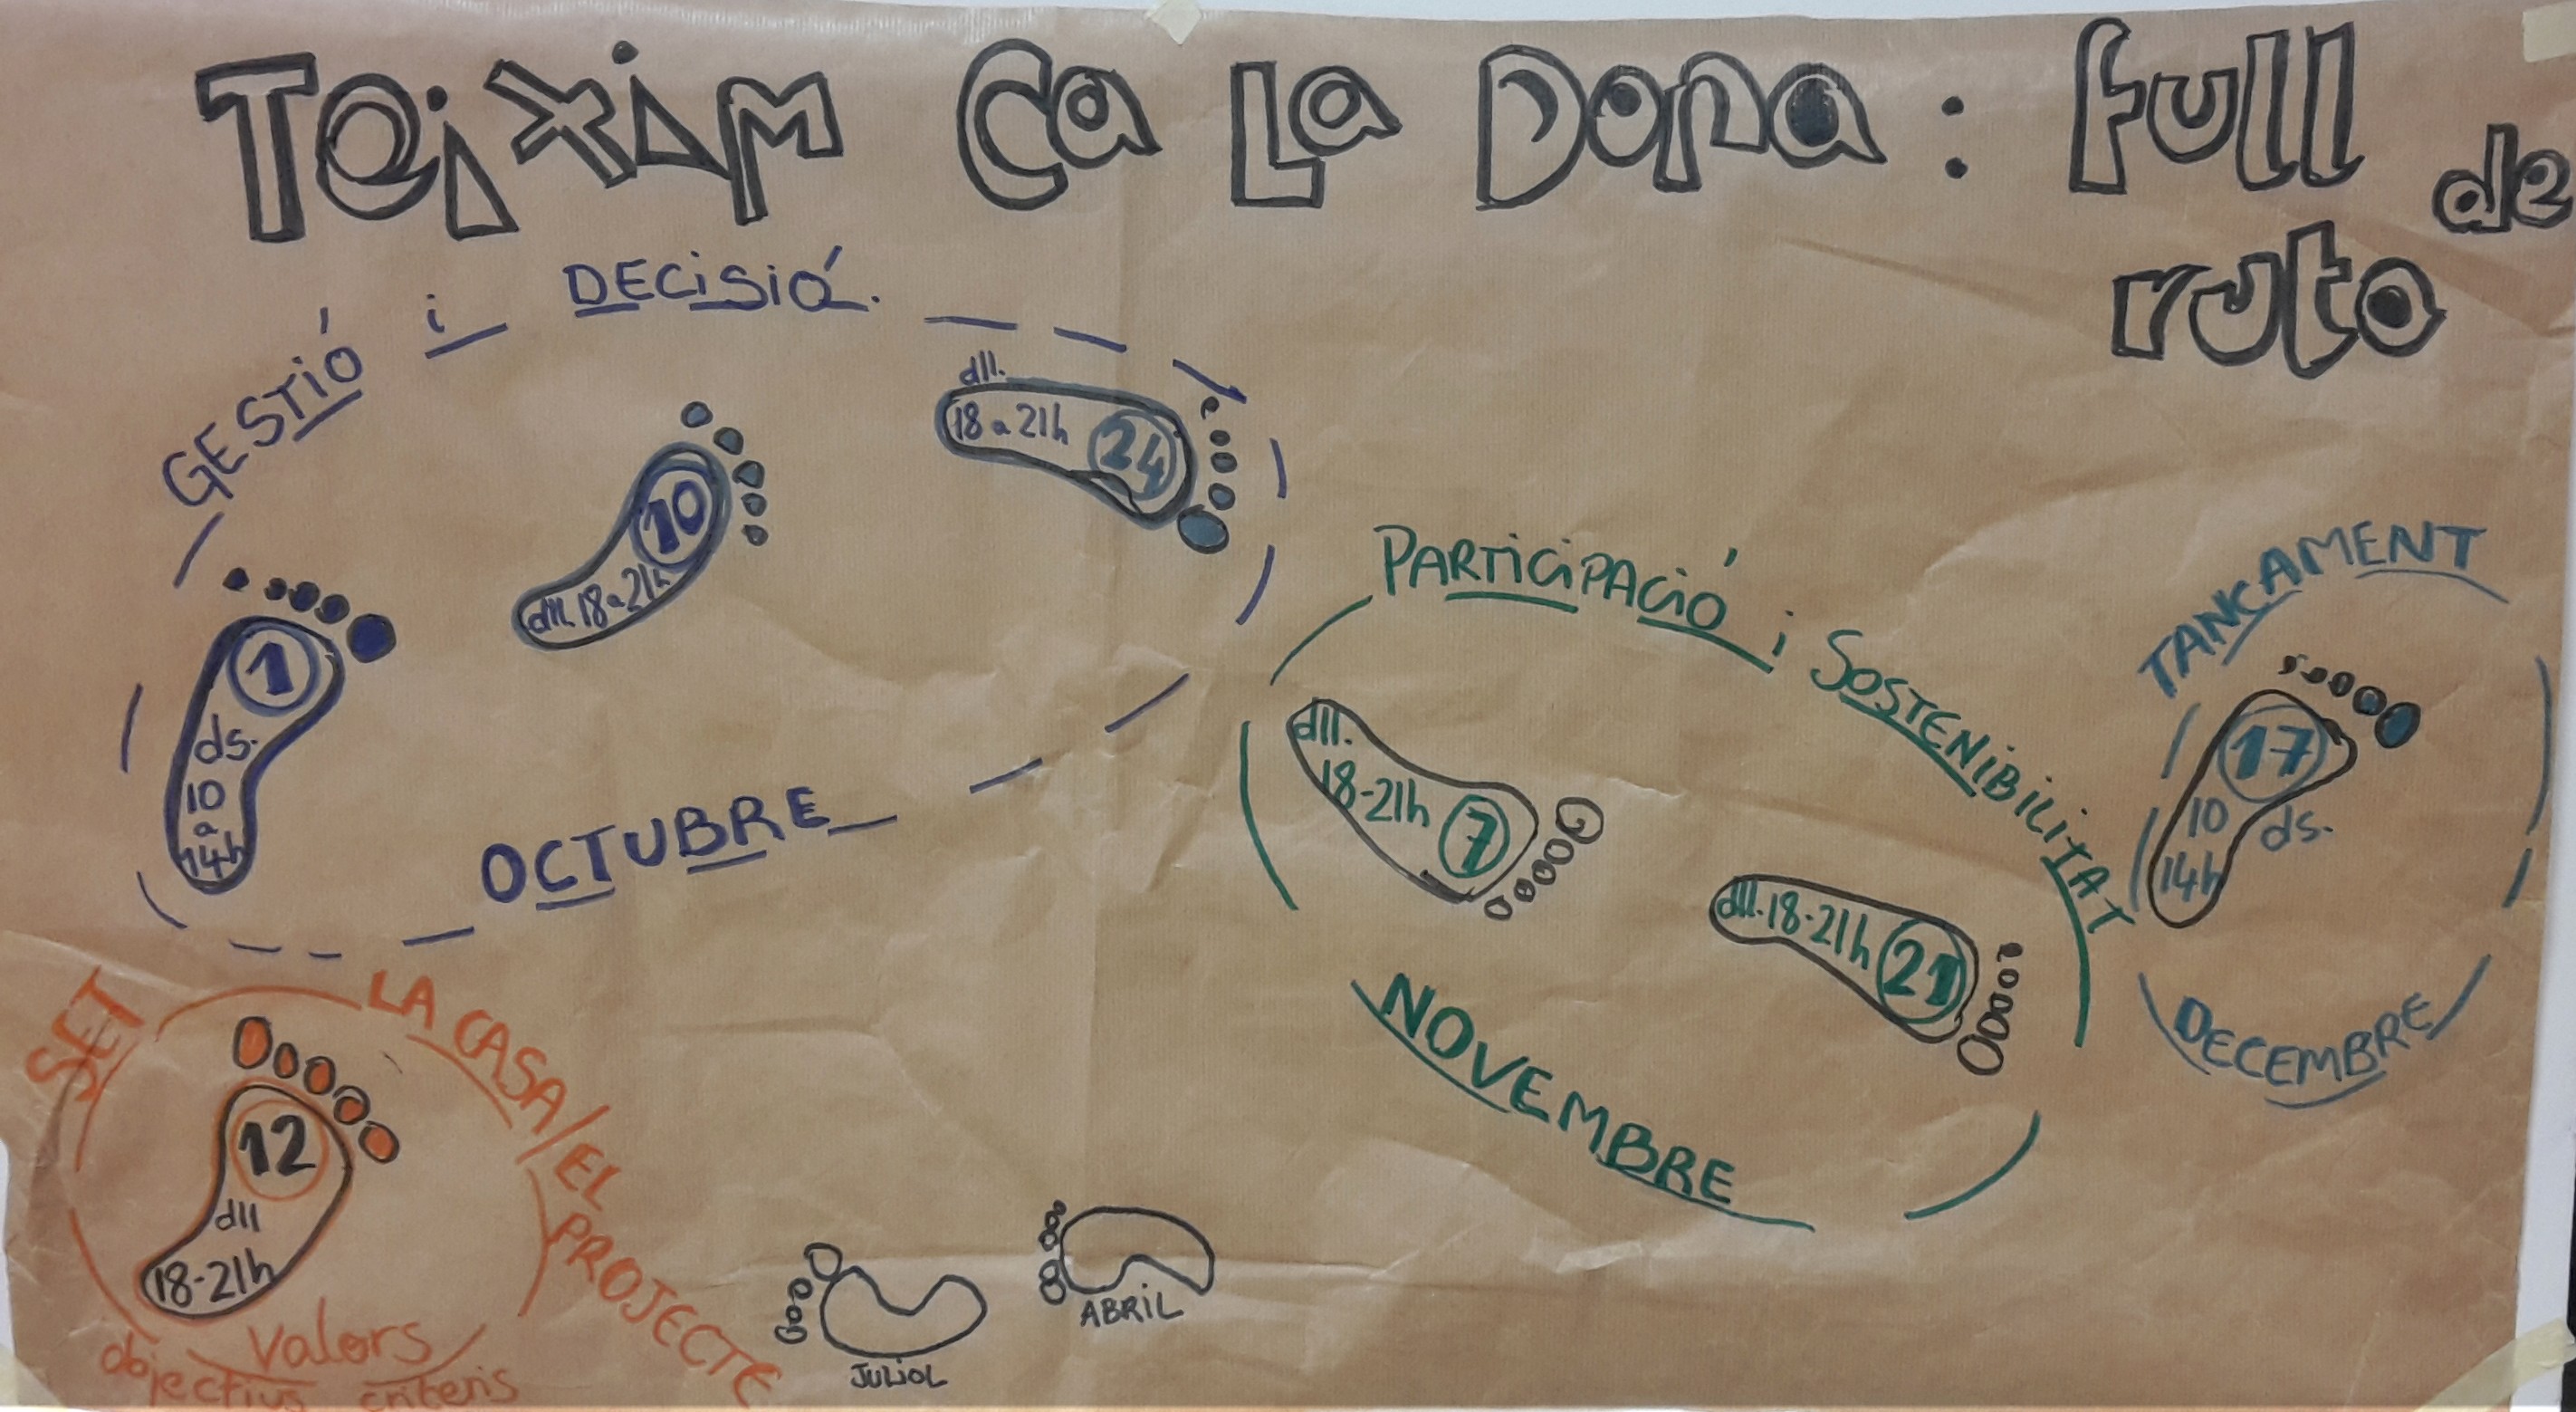 Teixim Ca La Dona : full de
ruta
GESTIÓ i DECISIÓ.
1
ds.
10
a
14h
10
dll. 18 a 21h
dll.
18 a 21h
24
OCTUBRE
PARTICIPACIÓ i SOSTENIBILITAT
dll.
18-21h
7
dll. 18-21h
21
NOVEMBRE
TANCAMENT
17
10
ds.
14h
DECEMBRE
SET
LA CASA/EL PROJECTE
12
dll
18-21h
valors
objectius criteris
JULIOL
ABRIL